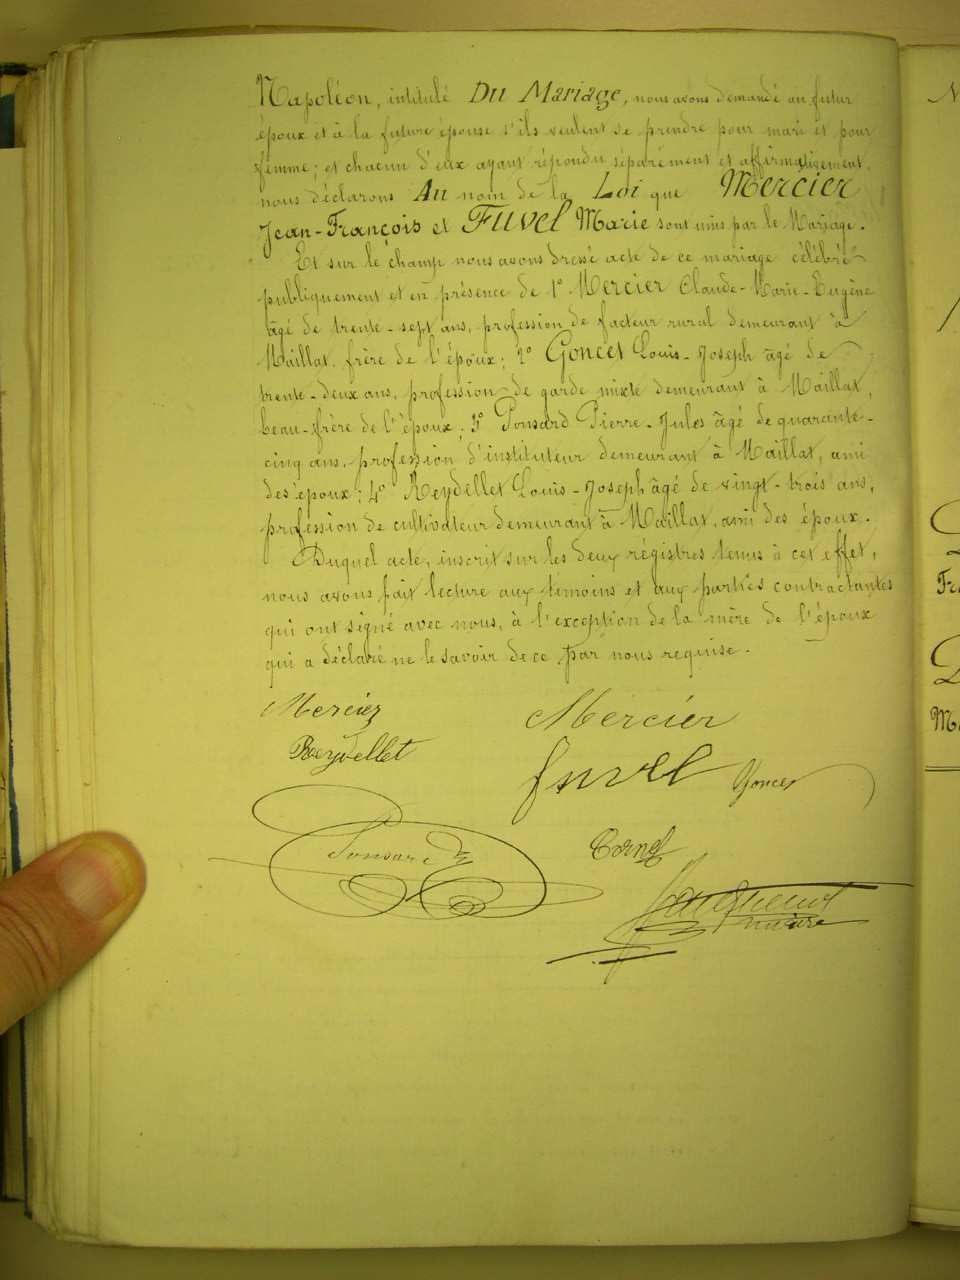 Napoléon, intitulé Du Mariage, nous avons demandé au futur
époux et à la future épouse s'ils veulent se prendre pour mari et pour
femme; et chacun d'eux ayant répondu séparément et affirmativement,
nous déclarons Au nom de la Loi que Mercier
Jean-François et Fuvel Marie sont unis par le Mariage.
Et sur le champ nous avons dressé acte de ce mariage célébré
publiquement et en présence de 1º Mercier Claude-Marie-Eugène
âgé de trente-sept ans, profession de facteur rural demeurant à
Maillat, frère de l'époux; 2º Goncet Louis-Joseph âgé de
trente-deux ans, profession de garde mixte demeurant à Maillat,
beau-frère de l'époux; 3º Ponsard Pierre-Jules âgé de quarante-
cinq ans, profession d'instituteur demeurant à Maillat, ami
des époux; 4º Reydellet Louis-Joseph âgé de vingt-trois ans,
profession de cultivateur demeurant à Maillat, ami des époux.
Duquel acte, inscrit sur les deux régistres tenus à cet effet,
nous avons fait lecture aux témoins et aux parties contractantes
qui ont signé avec nous, à l'exception de la mère de l'époux
qui a déclaré ne le savoir de ce par nous requise.
Mercier Mercier
Reydellet Fuvel Goncet
Ponsard
maire
N
Fra
Ma